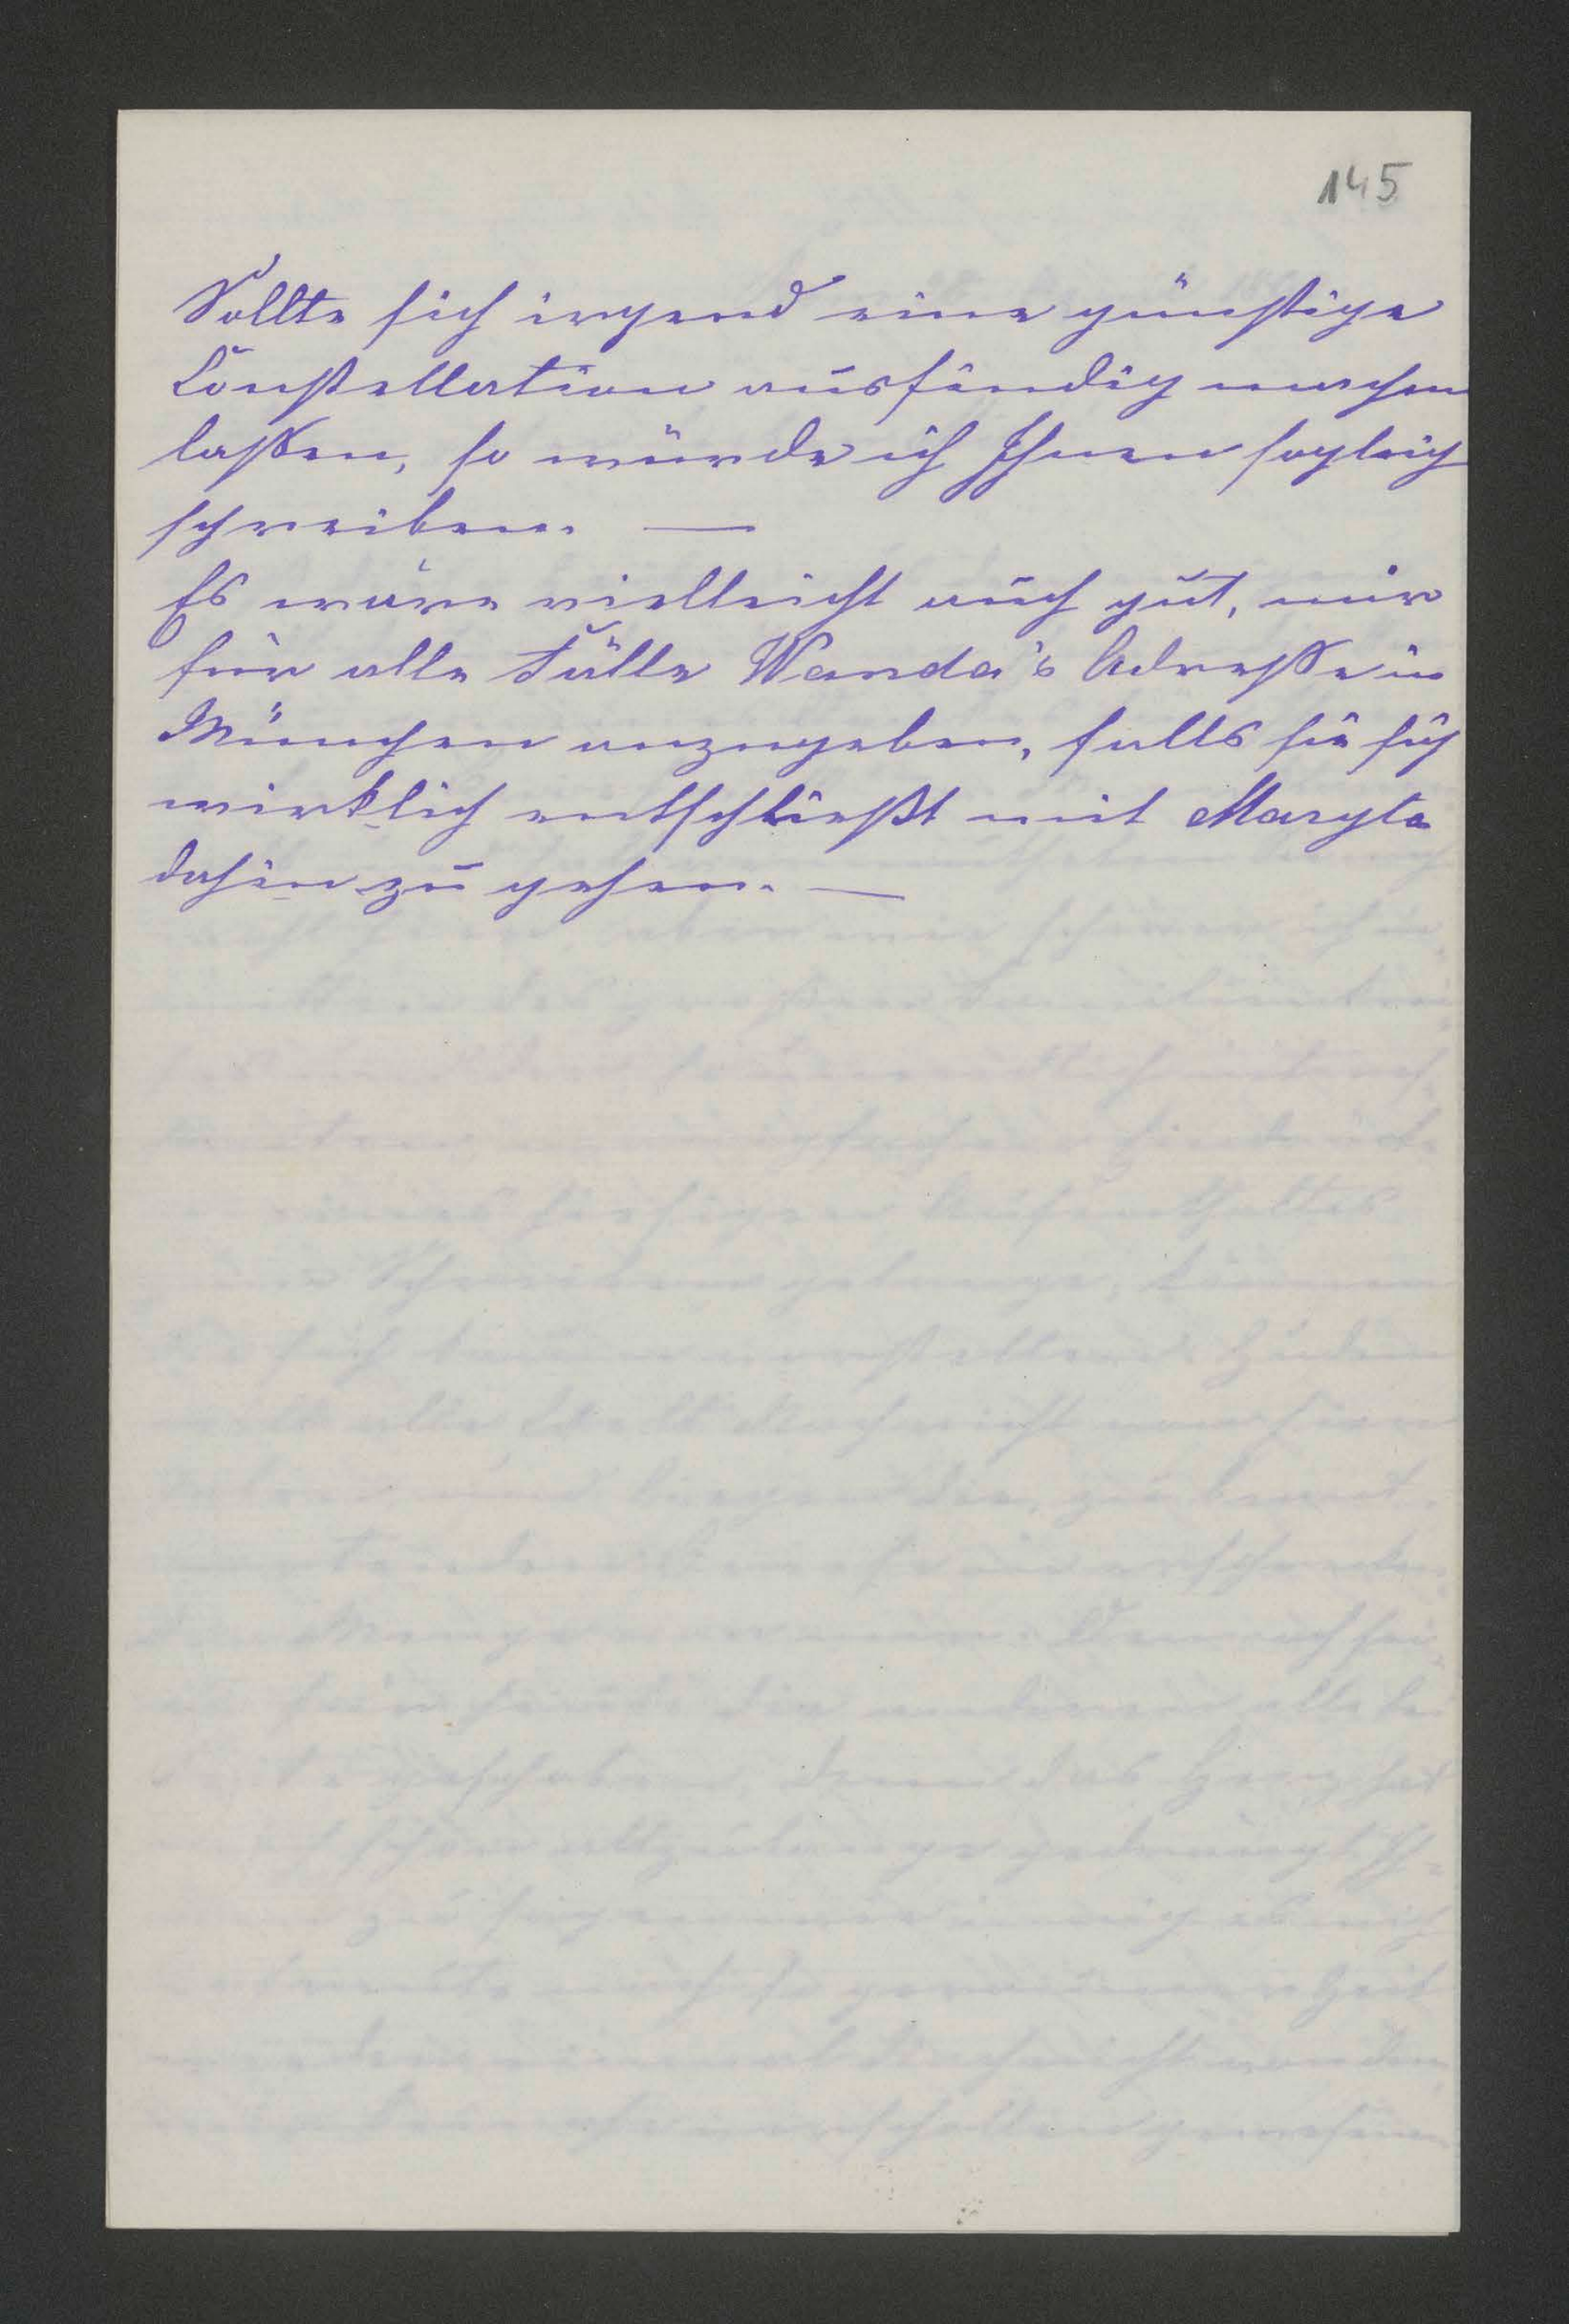 145
Sollte sich irgend eine günstige
Constellation ausfindig machen
lassen, so würde ich Ihnen sogleich
schreiben. —
Es wäre vielleicht auch gut, mir
für alle Fälle Wanda's Adresse in
München anzugeben, falls sie sich
wirklich entschließt mit Maryla
dahin zu gehen. —